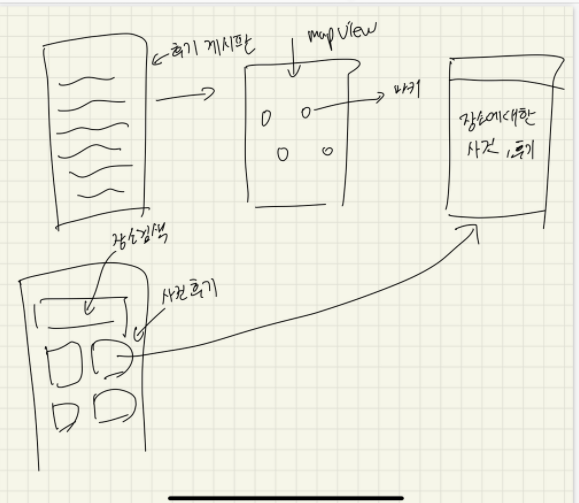 후기 게시판
map view
마커
장소에 대한
사진, 후기
장소검색
사진 후기